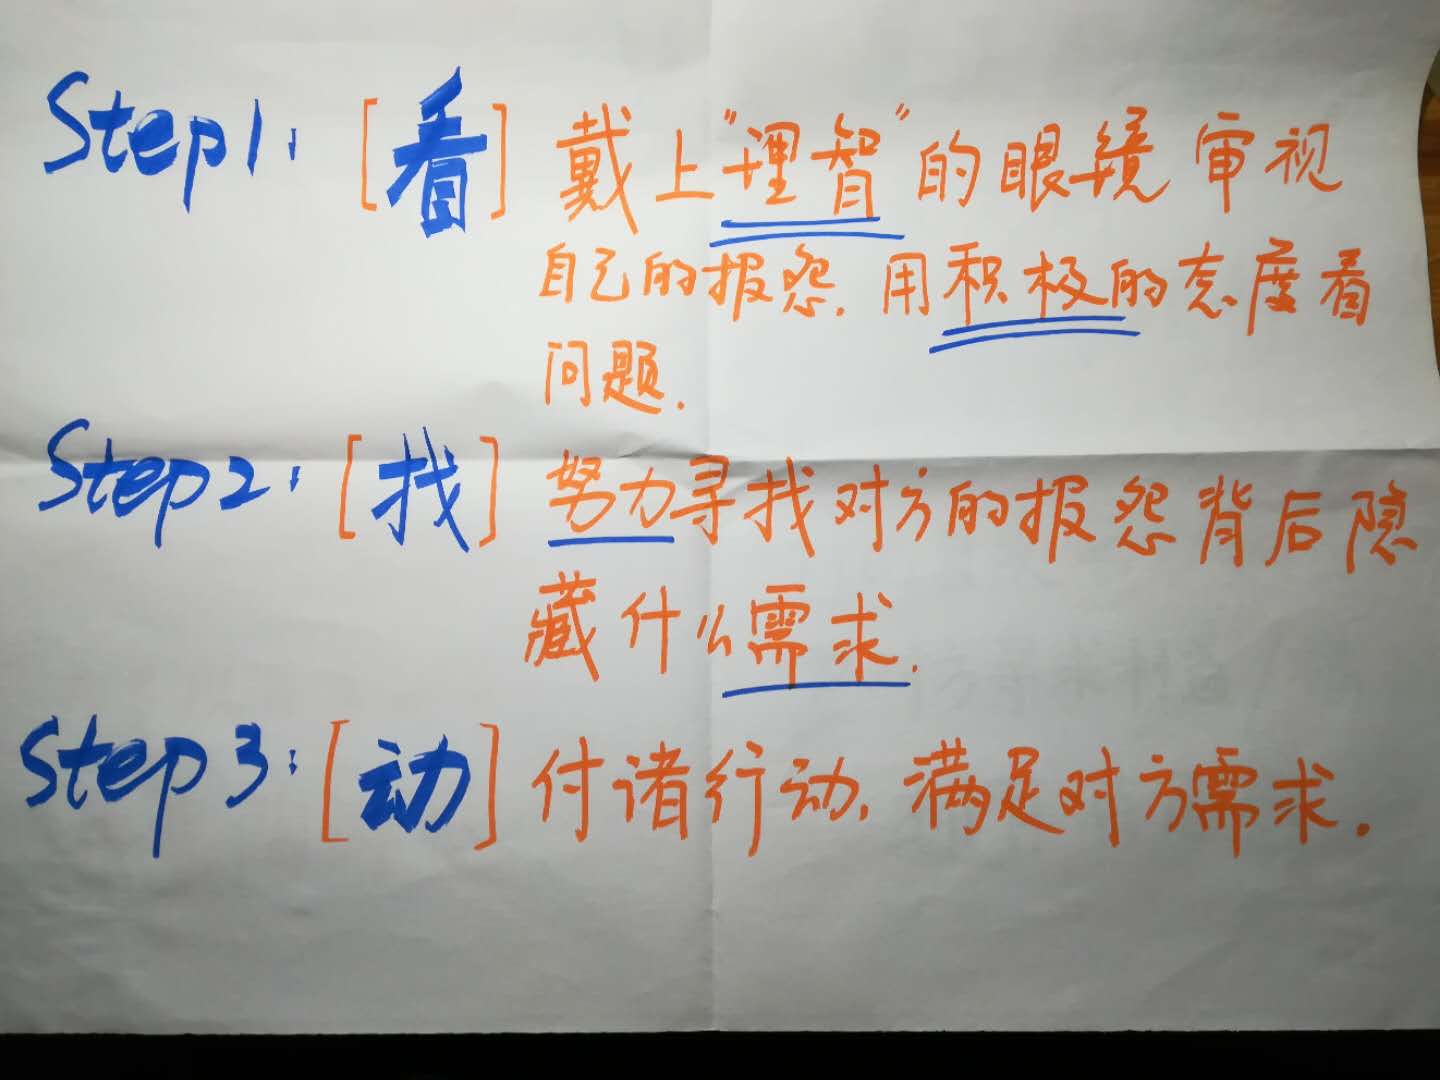 Step1: [看] 戴上"理智"的眼镜审视
自己的报怨. 用积极的态度看
问题.
Step2: [找] 努力寻找对方的报怨背后隐
藏什么需求.
Step3: [动] 付诸行动, 满足对方需求.